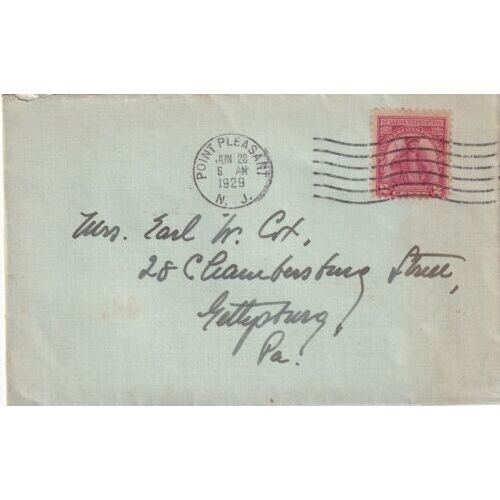 POINT PLEASANT
JUN 20
6 AM
1929
N. J.
Mrs. Earl W. Cox,
28 Chambersburg Street,
Gettysburg,
Pa.